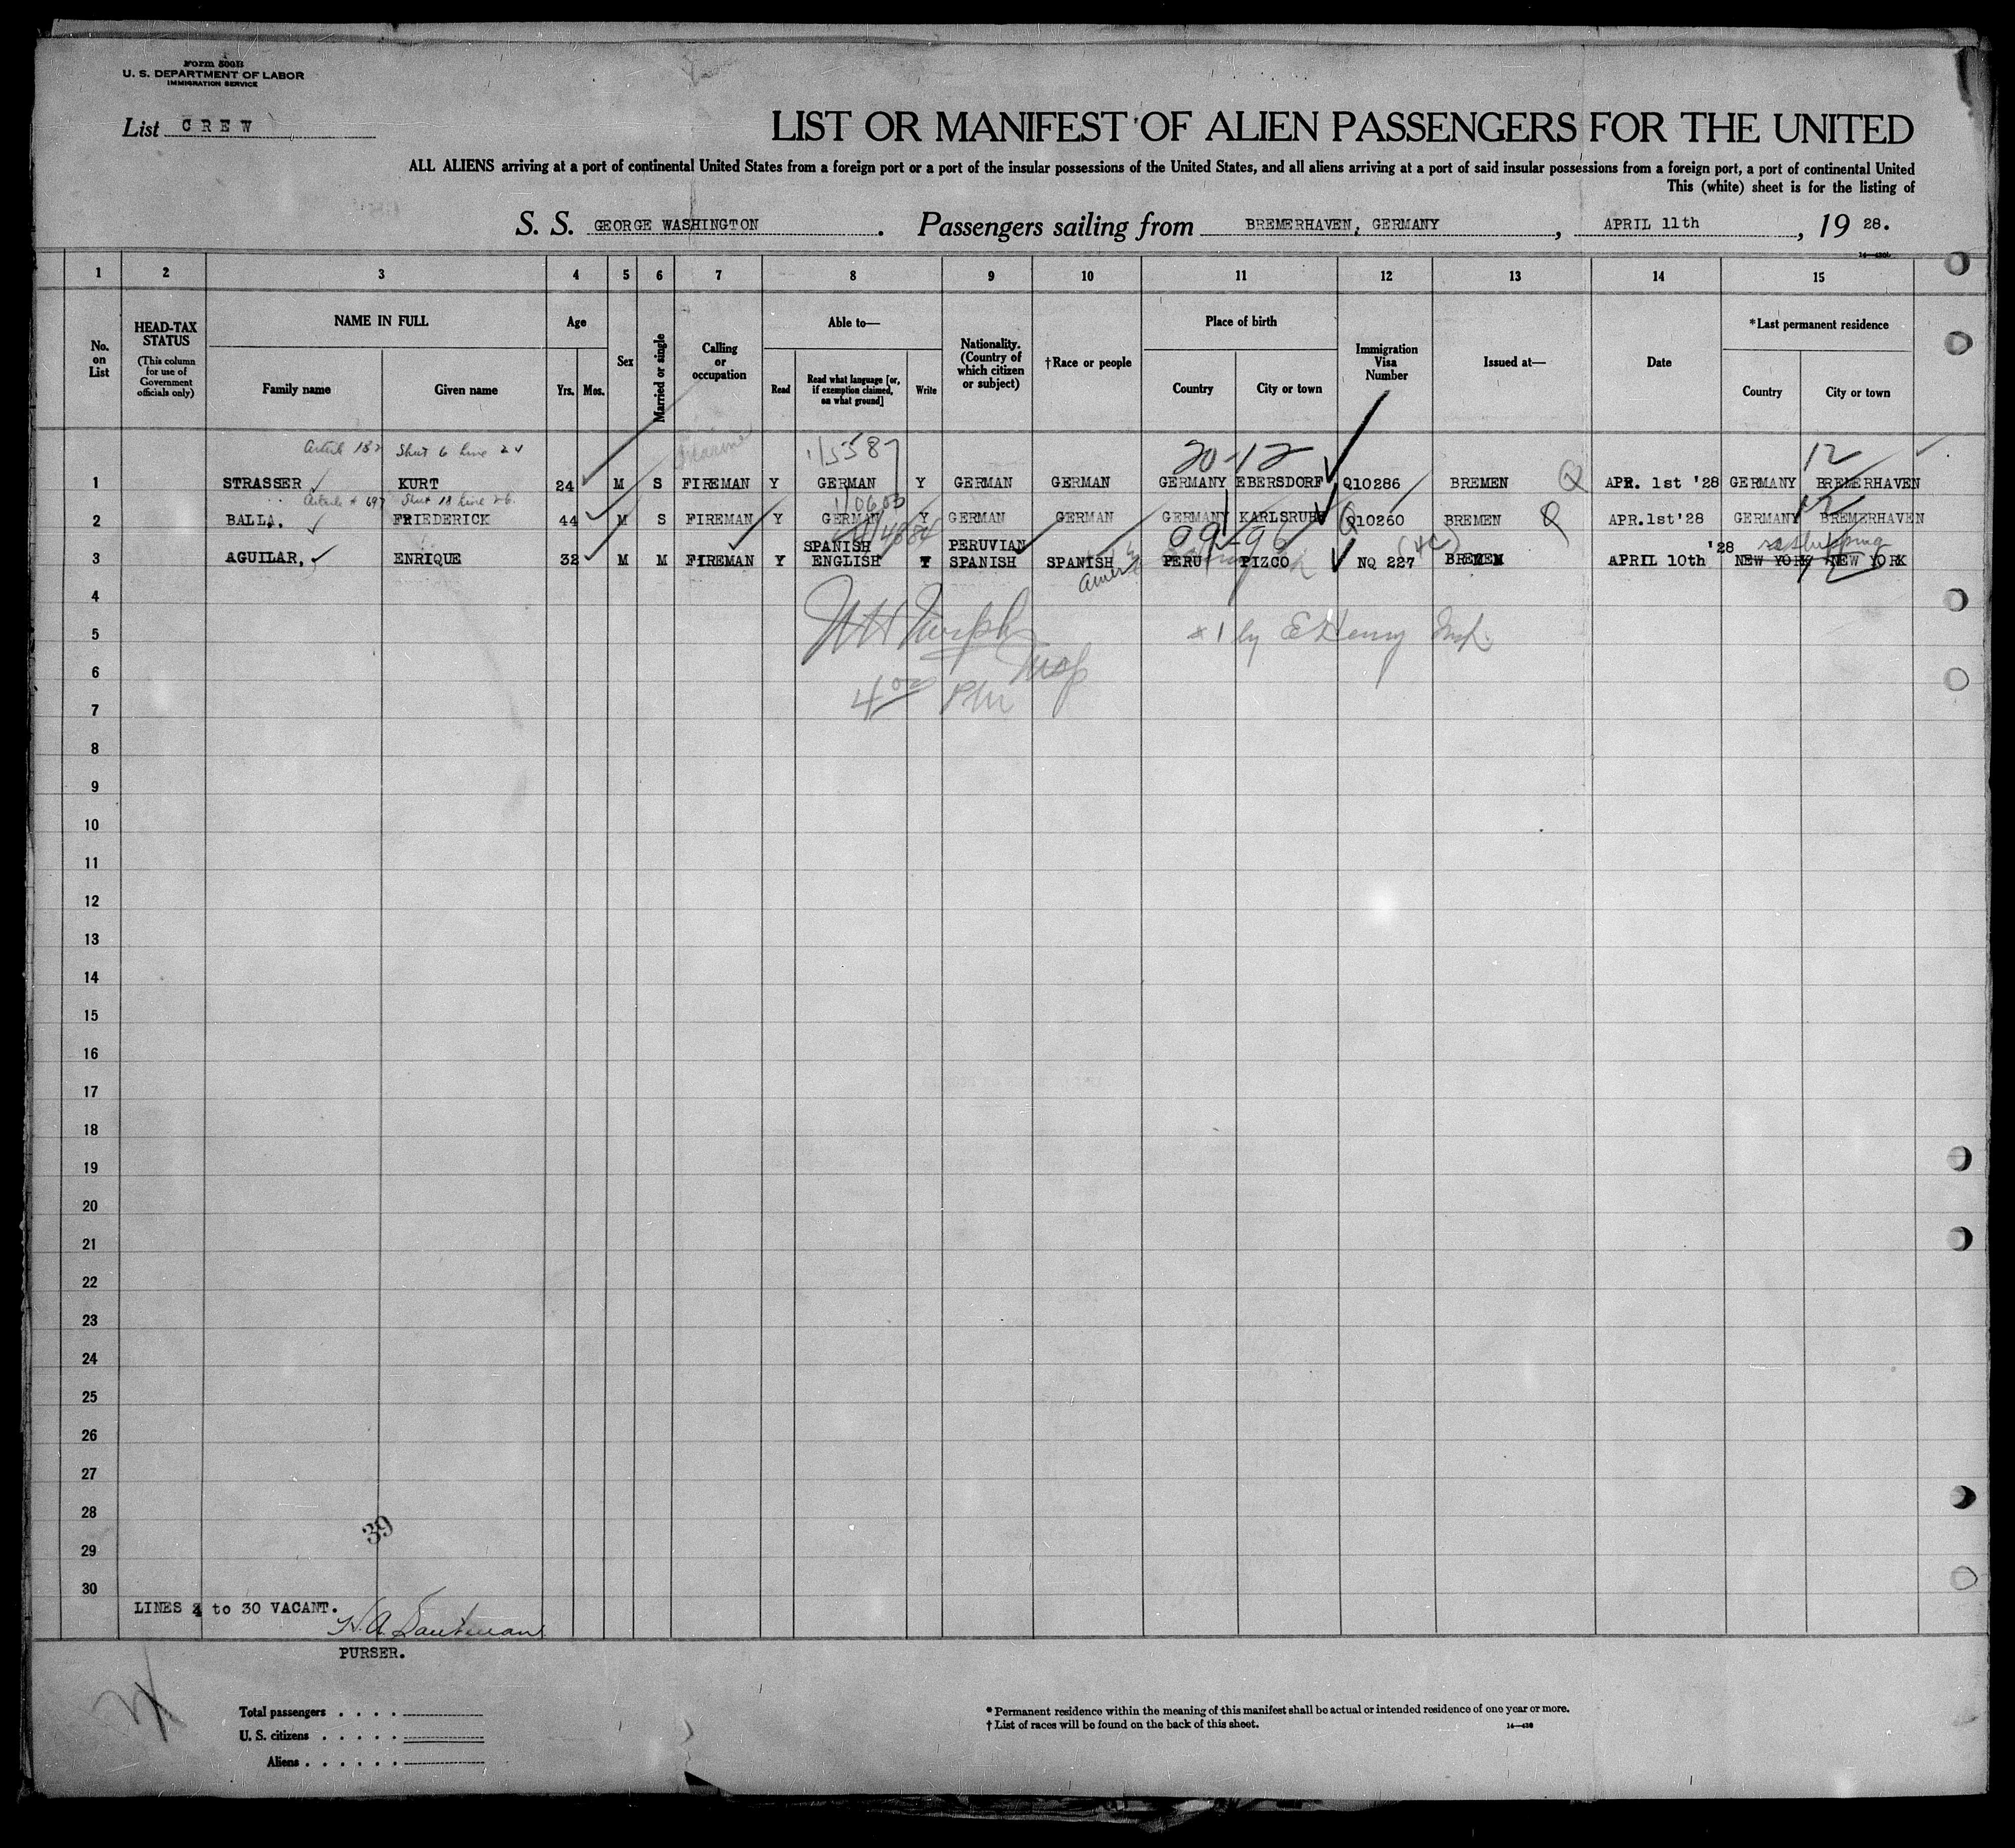 Form 500B
U. S. DEPARTMENT OF LABOR
IMMIGRATION SERVICE
List CREW
LIST OR MANIFEST OF ALIEN PASSENGERS FOR THE UNITED
ALL ALIENS arriving at a port of continental United States from a foreign port or a port of the insular possessions of the United States, and all aliens arriving at a port of said insular possessions from a foreign port, a port of continental United
This (white) sheet is for the listing of
S. S. GEORGE WASHINGTON. Passengers sailing from BREMERHAVEN, GERMANY, APRIL 11th, 19 28.
1 2 3 4 5 6 7 8 9 10 11 12 13 14 15
No. on List
HEAD-TAX STATUS (This column for use of Government officials only)
NAME IN FULL
Family name Given name
Age
Yrs. Mos.
Sex
Married or single
Calling or occupation
Able to—
Read Read what language [or, if exemption claimed, on what ground] Write
Nationality. (Country of which citizen or subject)
†Race or people
Place of birth
Country City or town
Immigration Visa Number
Issued at—
Date
*Last permanent residence
Country City or town
Sheet 6 Line 24
1/5587 20-12 12
1 STRASSER KURT 24 M S FIREMAN Y GERMAN Y GERMAN GERMAN GERMANY EBERSDORF Q10286 BREMEN Q APR. 1st '28 GERMANY BREMERHAVEN
Sheet 18 Line 26
12
2 BALLA, FRIEDERICK 44 M S FIREMAN Y GERMAN Y GERMAN GERMAN GERMANY KARLSRUHE Q10260 BREMEN Q APR.1st'28 GERMANY BREMERHAVEN
99-96
SPANISH PERUVIAN '28 reshipping
3 AGUILAR, ENRIQUE 32 M M FIREMAN Y ENGLISH Y SPANISH SPANISH PERU PIZCO NQ 227 BREMEN APRIL 10th NEW YORK NEW YORK
4
5
6
7
8
9
10
11
12
13
14
15
16
17
18
19
20
21
22
23
24
25
26
27
28
29
30
Murphy
Insp
4 00 PM
39
LINES 4 to 30 VACANT.
PURSER.
Total passengers
U. S. citizens
Aliens
* Permanent residence within the meaning of this manifest shall be actual or intended residence of one year or more.
† List of races will be found on the back of this sheet.